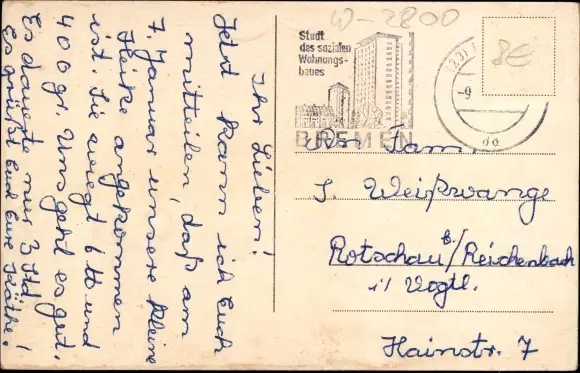 Ihr Lieben!
Jetzt kann ich Euch
mitteilen, daß am
7. Januar unsere kleine
Heike angekommen
ist. Sie wiegt 6 ℔ und
400 gr. Uns geht es gut.
Es dauerte nur 3 Std.!
Es grüßt Euch Eure Käthe!
W-2800
8€
Stadt
des sozialen
Wohnungs-
baues
BREMEN
-9
da
An Fam.
S. Weißwange
Rotschau b/Reichenbach
i/Vogtl.
Hainstr. 7